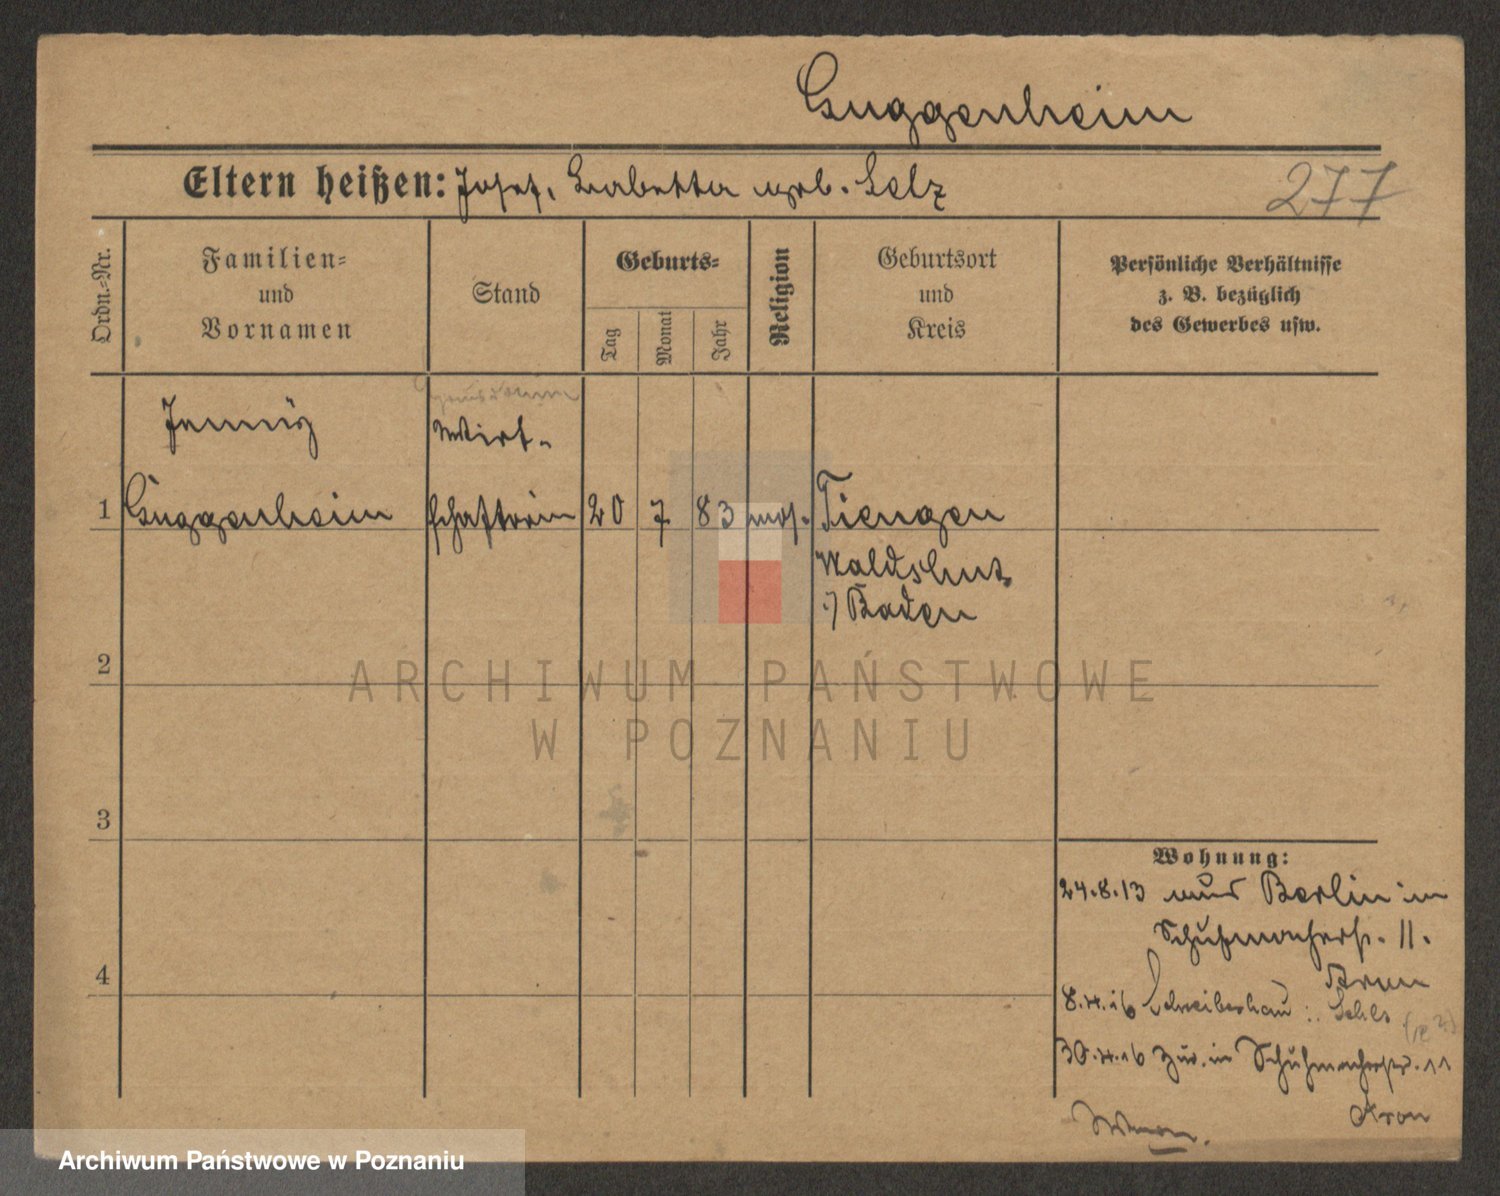 Guggenheim
Eltern heißen: Josef, Babette geb. Selz
277
Ordn.-Nr.
Familien-
und
Vornamen
Stand
Geburts-
Tag
Monat
Jahr
Religion
Geburtsort
und
Kreis
Persönliche Verhältnisse
z. B. bezüglich
des Gewerbes usw.
Jenny
Wirt-
1 Guggenheim schafterin 20 7 83 mos. Tiengen
Waldshut
i/ Baden
2
3
4
Wohnung:
24.8.13 aus Berlin in
Schuhmacherst. 11.
Aron
8.4.16 Schreiberhau
30.4.16 zur. in Schuhmacherstr. 11
Aron
ARCHIWUM PAŃSTWOWE
W POZNANIU
Archiwum Państwowe w Poznaniu